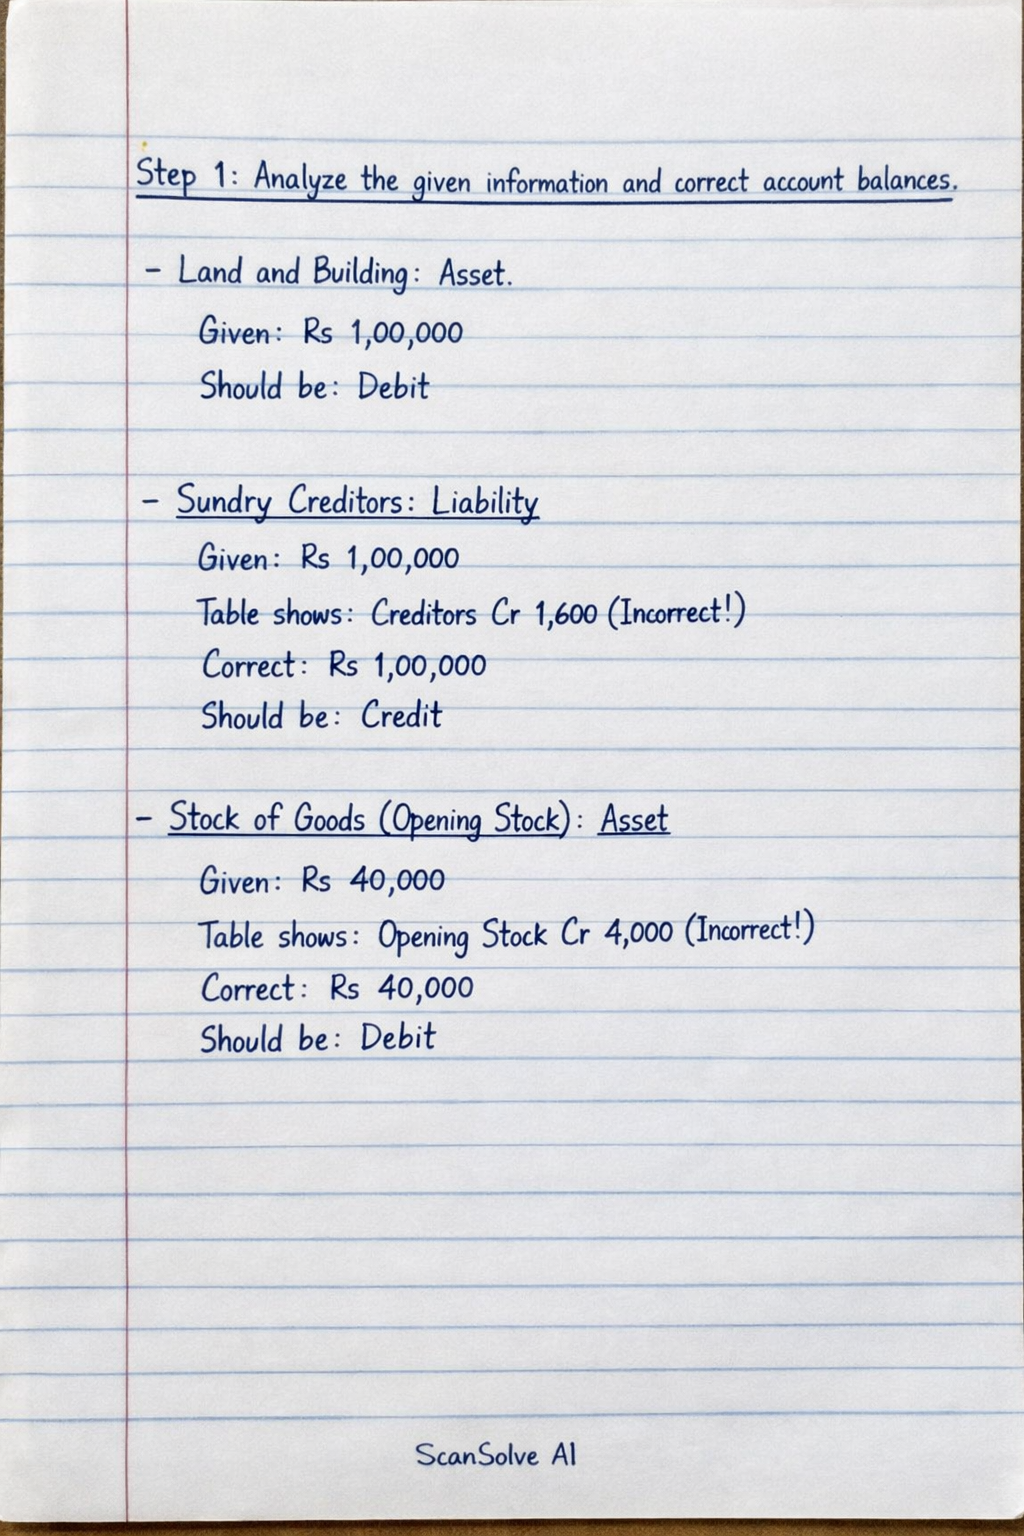 Step 1: Analyze the given information and correct account balances.
- Land and Building: Asset.
Given: Rs 1,00,000
Should be: Debit
- Sundry Creditors: Liability
Given: Rs 1,00,000
Table shows: Creditors Cr 1,600 (Incorrect!)
Correct: Rs 1,00,000
Should be: Credit
- Stock of Goods (Opening Stock): Asset
Given: Rs 40,000
Table shows: Opening Stock Cr 4,000 (Incorrect!)
Correct: Rs 40,000
Should be: Debit
ScanSolve AI